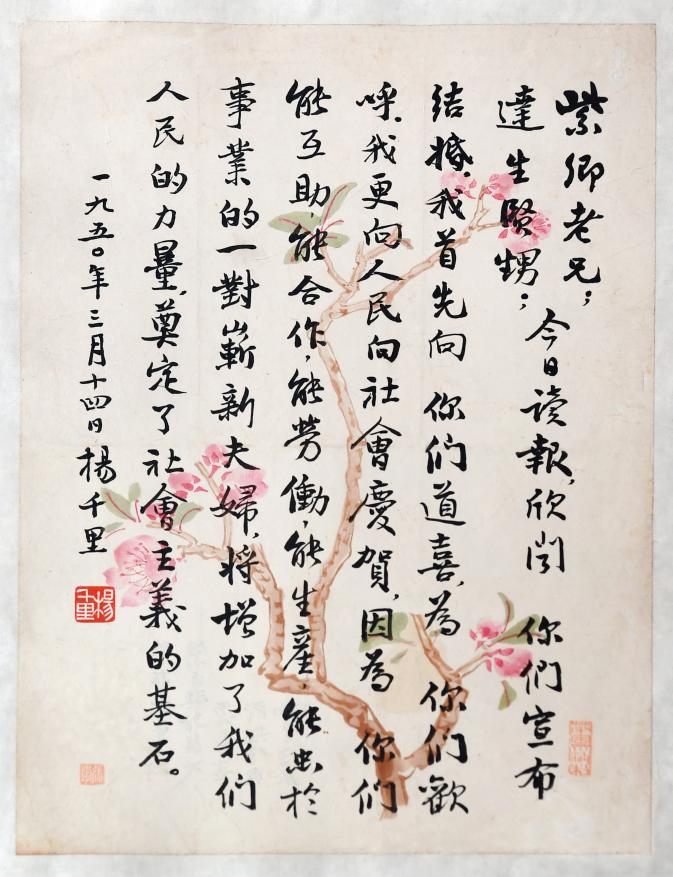 紫卿老兄；
達生賢甥；今日讀報，欣聞　你們宣布
結婚，我首先向　你们道喜，為　你们歡
呼，我更向人民向社會慶賀，因為　你们
能互助，能合作，能勞働，能生產，能忠於
事業的一對嶄新夫婦，将增加了我们
人民的力量，奠定了社會主義的基石。
一九五〇年三月十四日楊千里
楊千里